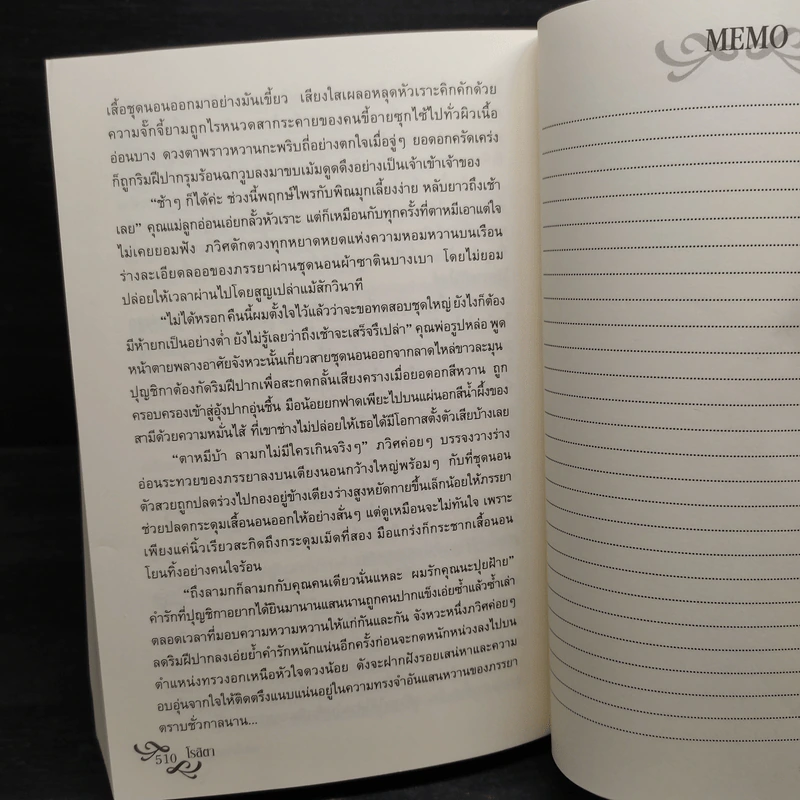 เสื้อชุดนอนออกมาอย่างมันเขี้ยว เสียงใสเผลอหลุดหัวเราะคิกคักด้วย
ความจั๊กจี้ยามถูกไรหนวดสากระคายของคนขี้อายซุกไซ้ไปทั่วผิวเนื้อ
อ่อนบาง ดวงตาพราวหวานกะพริบถี่อย่างตกใจเมื่อจู่ๆ ยอดอกครัดเคร่ง
ก็ถูกริมฝีปากรุมร้อนฉกวูบลงมาขบเม้มดูดดึงอย่างเป็นเจ้าเข้าเจ้าของ
“ช้าๆ ก็ได้ค่ะ ช่วงนี้พฤกษ์ไพรกับพิณมุกเลี้ยงง่าย หลับยาวถึงเช้า
เลย” คุณแม่ลูกอ่อนเอ่ยกลั้วหัวเราะ แต่ก็เหมือนกับทุกครั้งที่ตาหมีเอาแต่ใจ
ไม่เคยยอมฟัง ภวิศตักตวงทุกหยาดหยดแห่งความหอมหวานบนเรือน
ร่างละเอียดลออของภรรยาผ่านชุดนอนผ้าซาตินบางเบา โดยไม่ยอม
ปล่อยให้เวลาผ่านไปโดยสูญเปล่าแม้สักวินาที
“ไม่ได้หรอก คืนนี้ผมตั้งใจไว้แล้วว่าจะขอทดสอบชุดใหญ่ ยังไงก็ต้อง
มีห้ายกเป็นอย่างต่ำ ยังไม่รู้เลยว่าถึงเช้าจะเสร็จรึเปล่า” คุณพ่อรูปหล่อ พูด
หน้าตายพลางอาศัยจังหวะนั้นเกี่ยวสายชุดนอนออกจากลาดไหล่ขาวละมุน
ปุญชิกาต้องกัดริมฝีปากเพื่อสะกดกลั้นเสียงครางเมื่อยอดอกสีหวาน ถูก
ครอบครองเข้าสู่อุ้งปากอุ่นชื้น มือน้อยยกฟาดเพียะไปบนแผ่นอกสีน้ำผึ้งของ
สามีด้วยความหมั่นไส้ ที่เขาช่างไม่ปล่อยให้เธอได้มีโอกาสตั้งตัวเสียบ้างเลย
“ตาหมีบ้า ลามกไม่มีใครเกินจริงๆ” ภวิศค่อยๆ บรรจงวางร่าง
อ่อนระทวยของภรรยาลงบนเตียงนอนกว้างใหญ่พร้อมๆ กับที่ชุดนอน
ตัวสวยถูกปลดร่วงไปกองอยู่ข้างเตียง ร่างสูงหยัดกายขึ้นเล็กน้อยให้ภรรยา
ช่วยปลดกระดุมเสื้อนอนออกให้อย่างสั่นๆ แต่ดูเหมือนจะไม่ทันใจ เพราะ
เพียงแค่นิ้วเรียวสะกิดถึงกระดุมเม็ดที่สอง มือแกร่งก็กระชากเสื้อนอน
โยนทิ้งอย่างคนใจร้อน
“ถึงลามกก็ลามกกับคุณคนเดียวนั่นแหละ ผมรักคุณนะปุยฝ้าย”
คำรักที่ปุญชิกาอยากได้ยินมานานแสนนานถูกคนปากแข็งเอ่ยซ้ำแล้วซ้ำเล่า
ตลอดเวลาที่มอบความหวามหวานให้แก่กันและกัน จังหวะหนึ่งภวิศค่อยๆ
ลดริมฝีปากลงเอ่ยย้ำคำรักหนักแน่นอีกครั้งก่อนจะกดหนักหน่วงลงไปบน
ตำแหน่งทรวงอกเหนือหัวใจดวงน้อย ดังจะฝากฝังรอยเสน่หาและความ
อบอุ่นจากใจให้ติดตรึงแนบแน่นอยู่ในความทรงจำอันแสนหวานของภรรยา
ตราบชั่วกาลนาน...
510 โรสิตา
MEMO